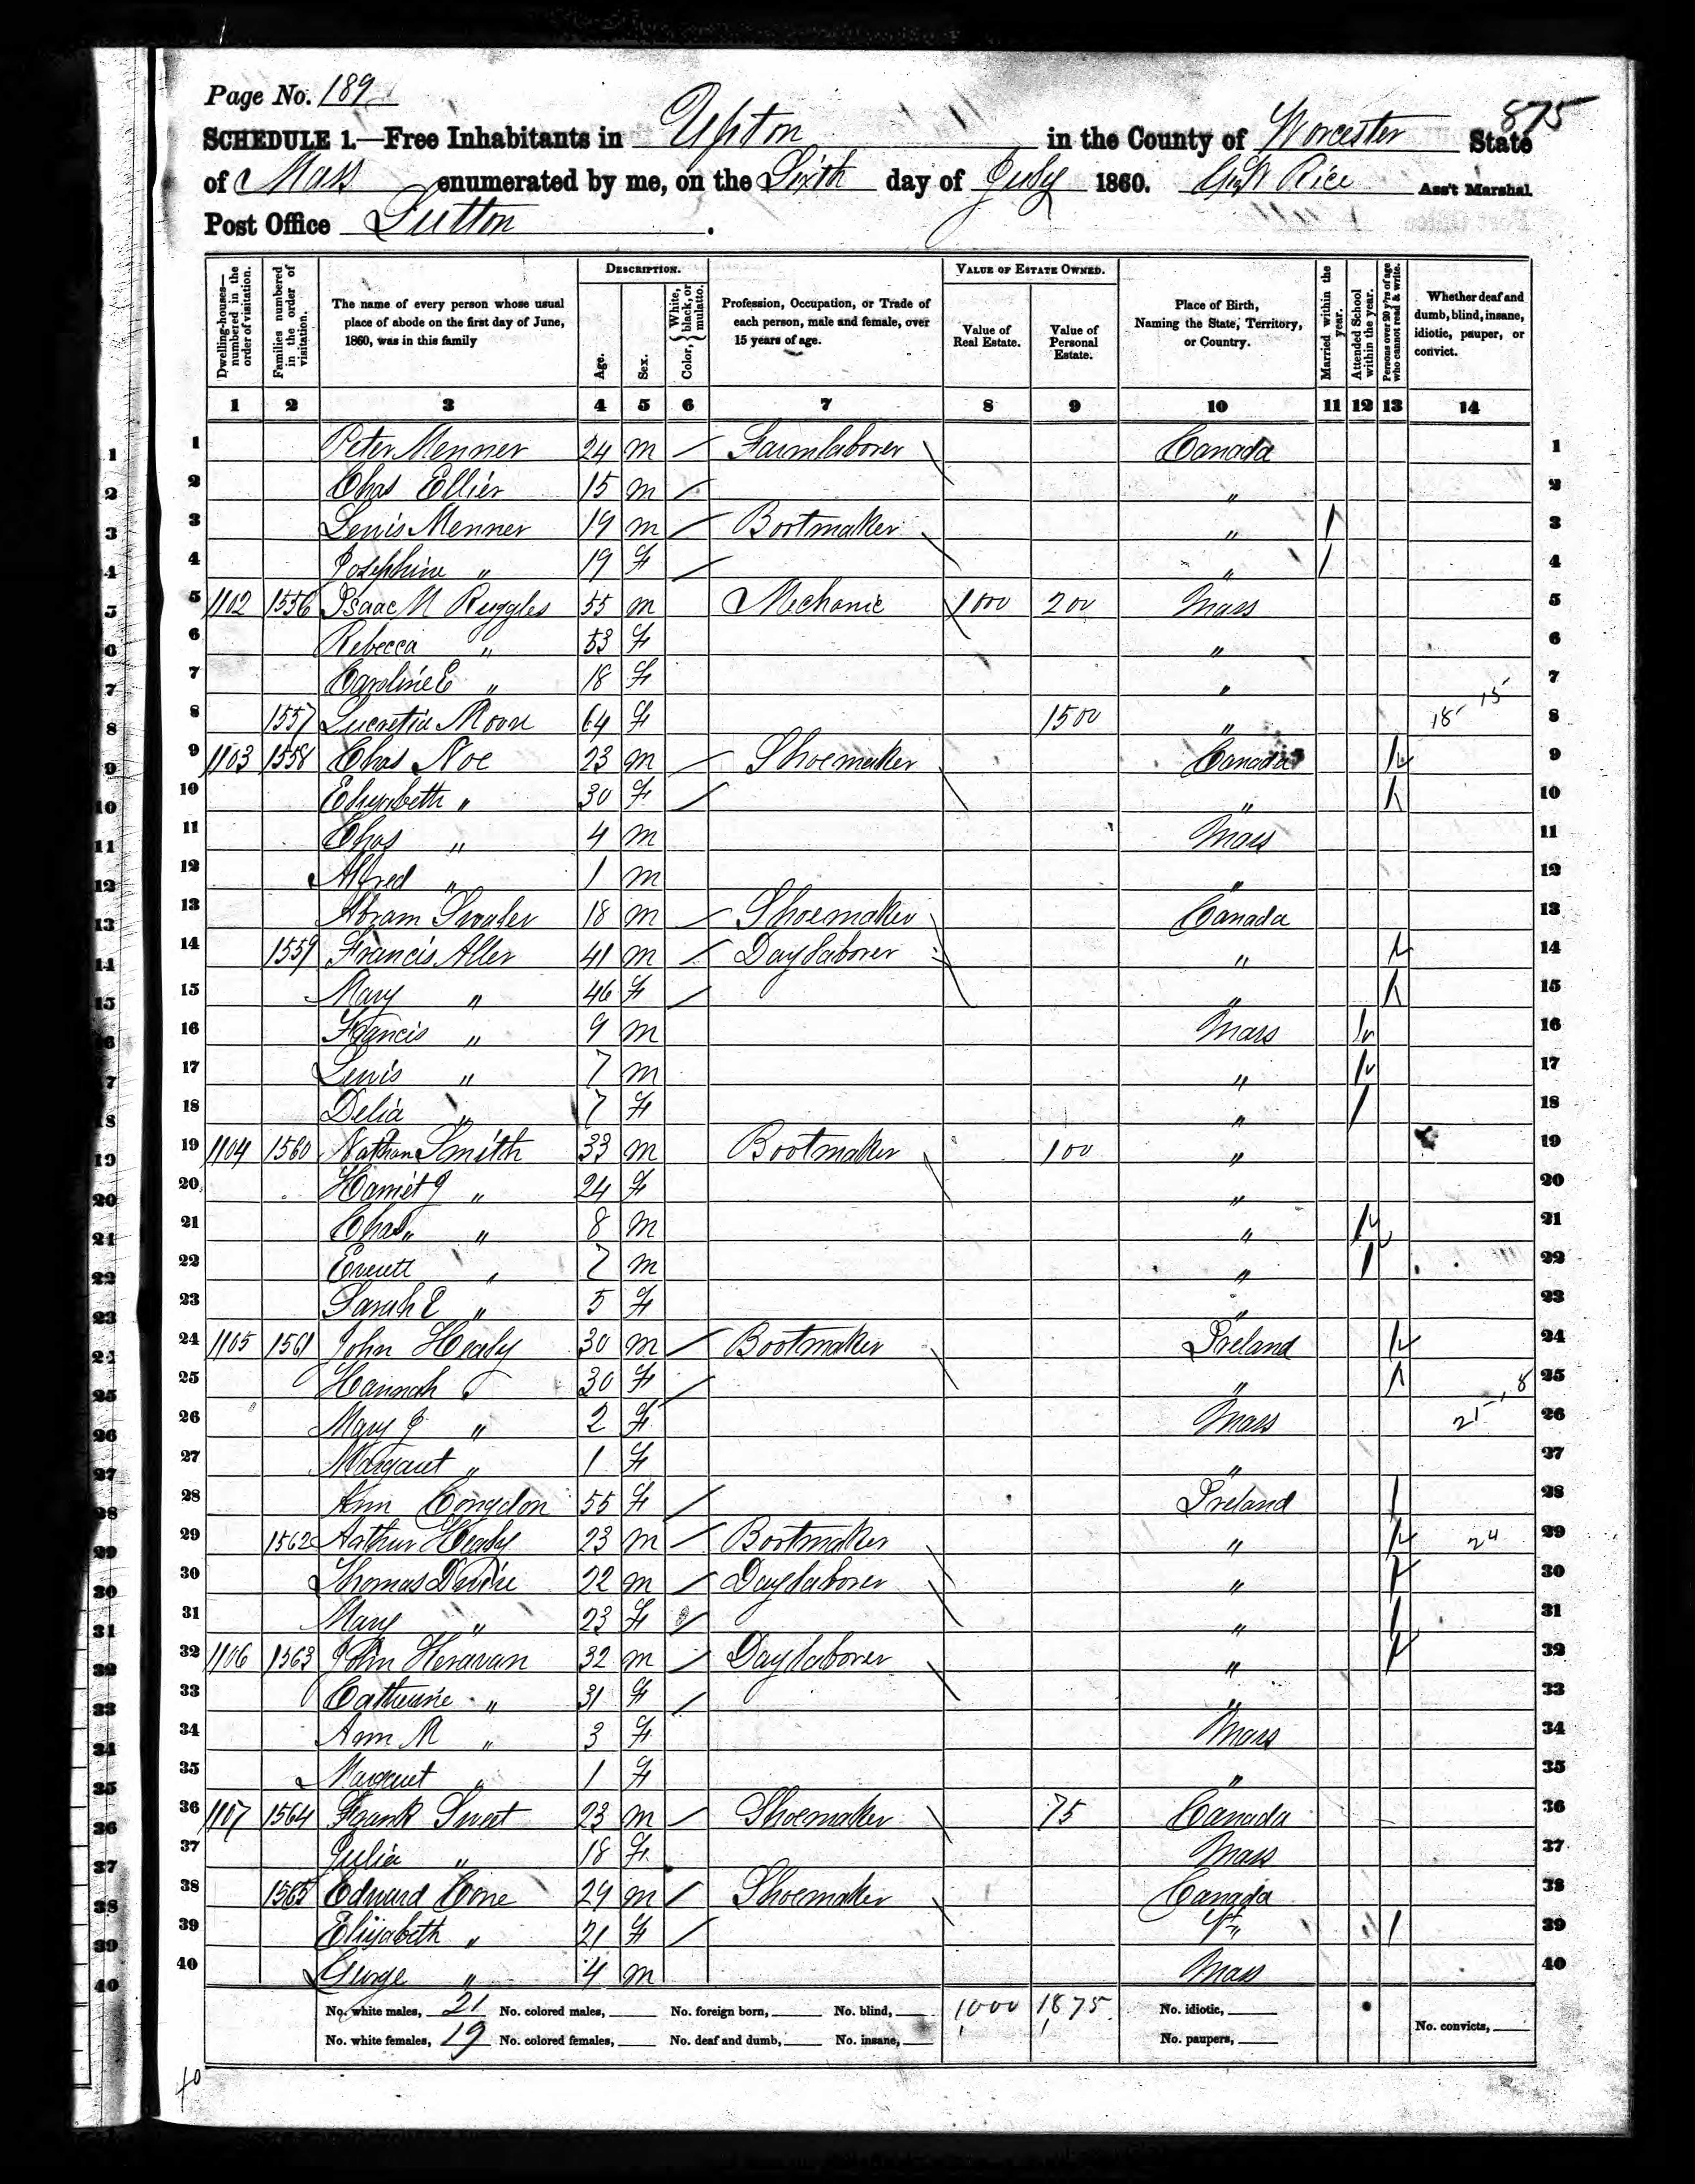 Page No. 189
875
SCHEDULE 1.—Free Inhabitants in Upton in the County of Worcester State
of Mass enumerated by me, on the Sixth day of July 1860. Geo W Rice Ass't Marshal
Post Office Sutton.
Dwelling-houses—numbered in the order of visitation. Families numbered in the order of visitation. The name of every person whose usual place of abode on the first day of June, 1860, was in this family DESCRIPTION. Age. Sex. Color, {White, black, or mulatto. Profession, Occupation, or Trade of each person, male and female, over 15 years of age. VALUE OF ESTATE OWNED. Value of Real Estate. Value of Personal Estate. Place of Birth, Naming the State, Territory, or Country. Married within the year. Attended School within the year. Persons over 20 y'rs of age who cannot read & write. Whether deaf and dumb, blind, insane, idiotic, pauper, or convict.
1 2 3 4 5 6 7 8 9 10 11 12 13 14
1 Peter Menner 24 m / Farm laborer Canada 1
2 Chas Ellier 15 m / " 2
3 Lewis Menner 19 m / Bootmaker " / 3
4 Josephine " 19 F / " / 4
5 1102 1556 Isaac N Ruggles 55 m Mechanic 1000 200 Mass 5
6 Rebecca " 53 F " 6
7 Caroline E " 18 F " 7
15
8 1557 Lucretia Moore 64 F 1500 " 18 8
9 1103 1558 Chas Noe 23 m / Shoemaker Canada / 9
10 Elizabeth " 30 F / " / 10
11 Chas " 4 m Mass 11
12 Alfred " 1 m " 12
13 Abram 18 m / Shoemaker Canada 13
14 1559 Francis Aller 41 m / Day laborer " / 14
15 Mary " 46 F / " / 15
16 Francis " 9 m Mass / 16
17 Lewis " 7 m " / 17
18 Delia " 7 F " / 18
19 1104 1560 Nathan Smith 33 m Bootmaker 100 " 19
20 Harriet J " 24 F " 20
21 Chas " " 8 m " / 21
22 Everett " 7 m " / 22
23 Sarah E " 5 F " 23
24 1105 1561 John Healy 30 m / Bootmaker Ireland / 24
25 Hannah " 30 F / " / 8 25
26 Mary J " 2 F Mass 21 26
27 Margaret " 1 F " 27
28 Ann Congdon 55 F / Ireland / 28
29 1562 Arthur Healy 23 m / Bootmaker " / 24 29
30 Thomas Devine 22 m / Day laborer " / 30
31 Mary " 23 F / " / 31
32 1106 1563 John Heravan 32 m / Day laborer " / 32
33 Catherine " 31 F / " 33
34 Ann M " 3 F Mass 34
35 Margaret " 1 F " 35
36 1107 1564 Frank Sweet 23 m / Shoemaker 75 Canada 36
37 Julia " 18 F Mass 37
38 1565 Edward Cone 29 m / Shoemaker Canada 38
39 Elizabeth " 21 F / / 39
40 George " 4 m Mass 40
No. white males, 21 No. colored males, No. foreign born, No. blind, 1000 1875 No. idiotic,
No. white females, 19 No. colored females, No. deaf and dumb, No. insane, No. paupers, No. convicts,
40